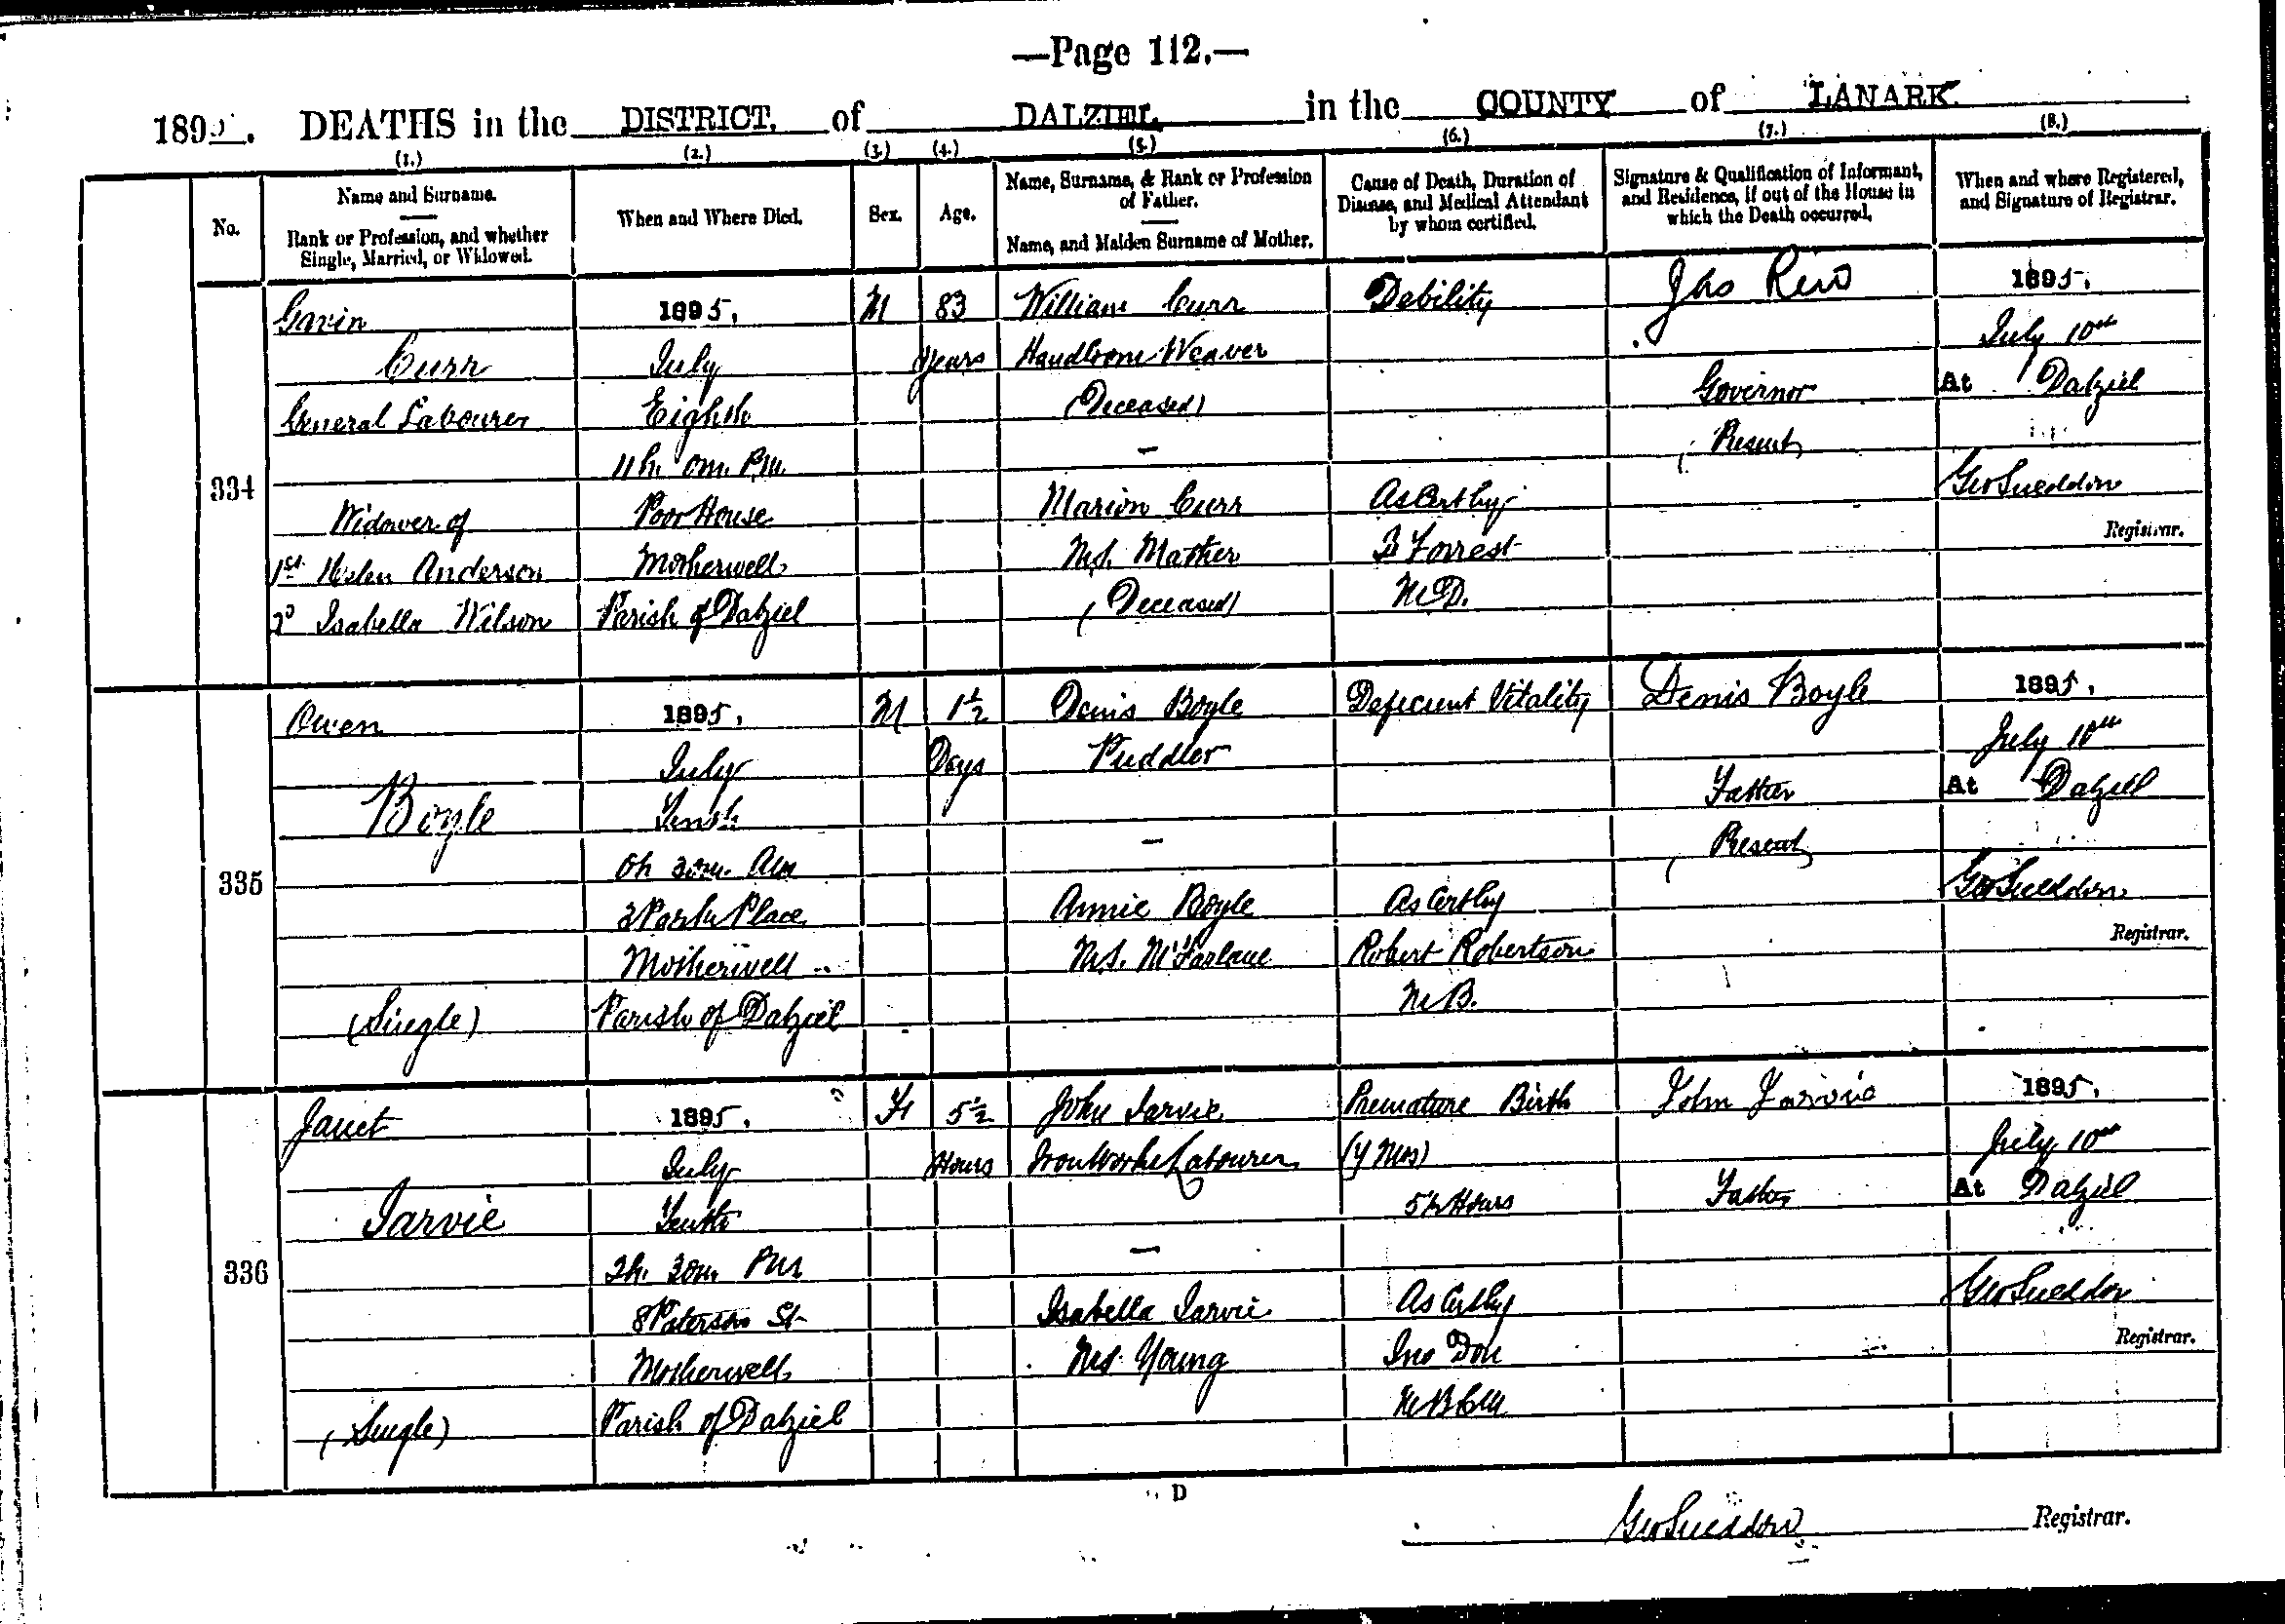 —Page 112.—
1895. DEATHS in the DISTRICT. of DALZIEL in the COUNTY of LANARK.
(1.) (2.) (3.) (4.) (5.) (6.) (7.) (8.)
No.
Name and Surname.
Rank or Profession, and whether
Single, Married, or Widowed.
When and Where Died.
Sex.
Age.
Name, Surname, & Rank or Profession
of Father.
Name, and Maiden Surname of Mother.
Cause of Death, Duration of
Disease, and Medical Attendant
by whom certified.
Signature & Qualification of Informant,
and Residence, if out of the House in
which the Death occurred.
When and where Registered,
and Signature of Registrar.
334
Gavin
Curr
General Labourer
Widower of
1st Helen Anderson
2d Isabella Wilson
1895,
July
Eighth
11h. 0m. P.M.
Poor House
Motherwell
Parish of Dalziel
M
83
Years
William Curr
Handloom Weaver
(Deceased)
—
Marion Curr
M.S. Mather
(Deceased)
Debility
As Cert by
Forrest
M.D.
Jas Reid
Governor
(Present)
1895,
July 10th
At Dalziel
Geo Sneddon
Registrar.
335
Owen
Boyle
(Single)
1895,
July
Tenth
0h 30m. AM
3 Parks Place
Motherwell
Parish of Dalziel
M
1½
Days
Denis Boyle
Puddler
—
Annie Boyle
M.S. McFarlane
Deficient Vitality
As Cert by
Robert Robertson
M.B.
Denis Boyle
Father
(Present)
1895,
July 10th
At Dalziel
Geo Sneddon
Registrar.
336
Janet
Jarvie
(Single)
1895,
July
Tenth
2h. 30m PM
8 Paterson St
Motherwell
Parish of Dalziel
F
5½
Hours
John Jarvie
Iron Works Labourer
—
Isabella Jarvie
MS. Young
Premature Birth
(7 Mos)
5½ Hours
As Cert by
Jno Don
M.B.C.M.
John Jarvie
Father
1895,
July 10th
At Dalziel
Geo Sneddon
Registrar.
D
Geo Sneddon Registrar.